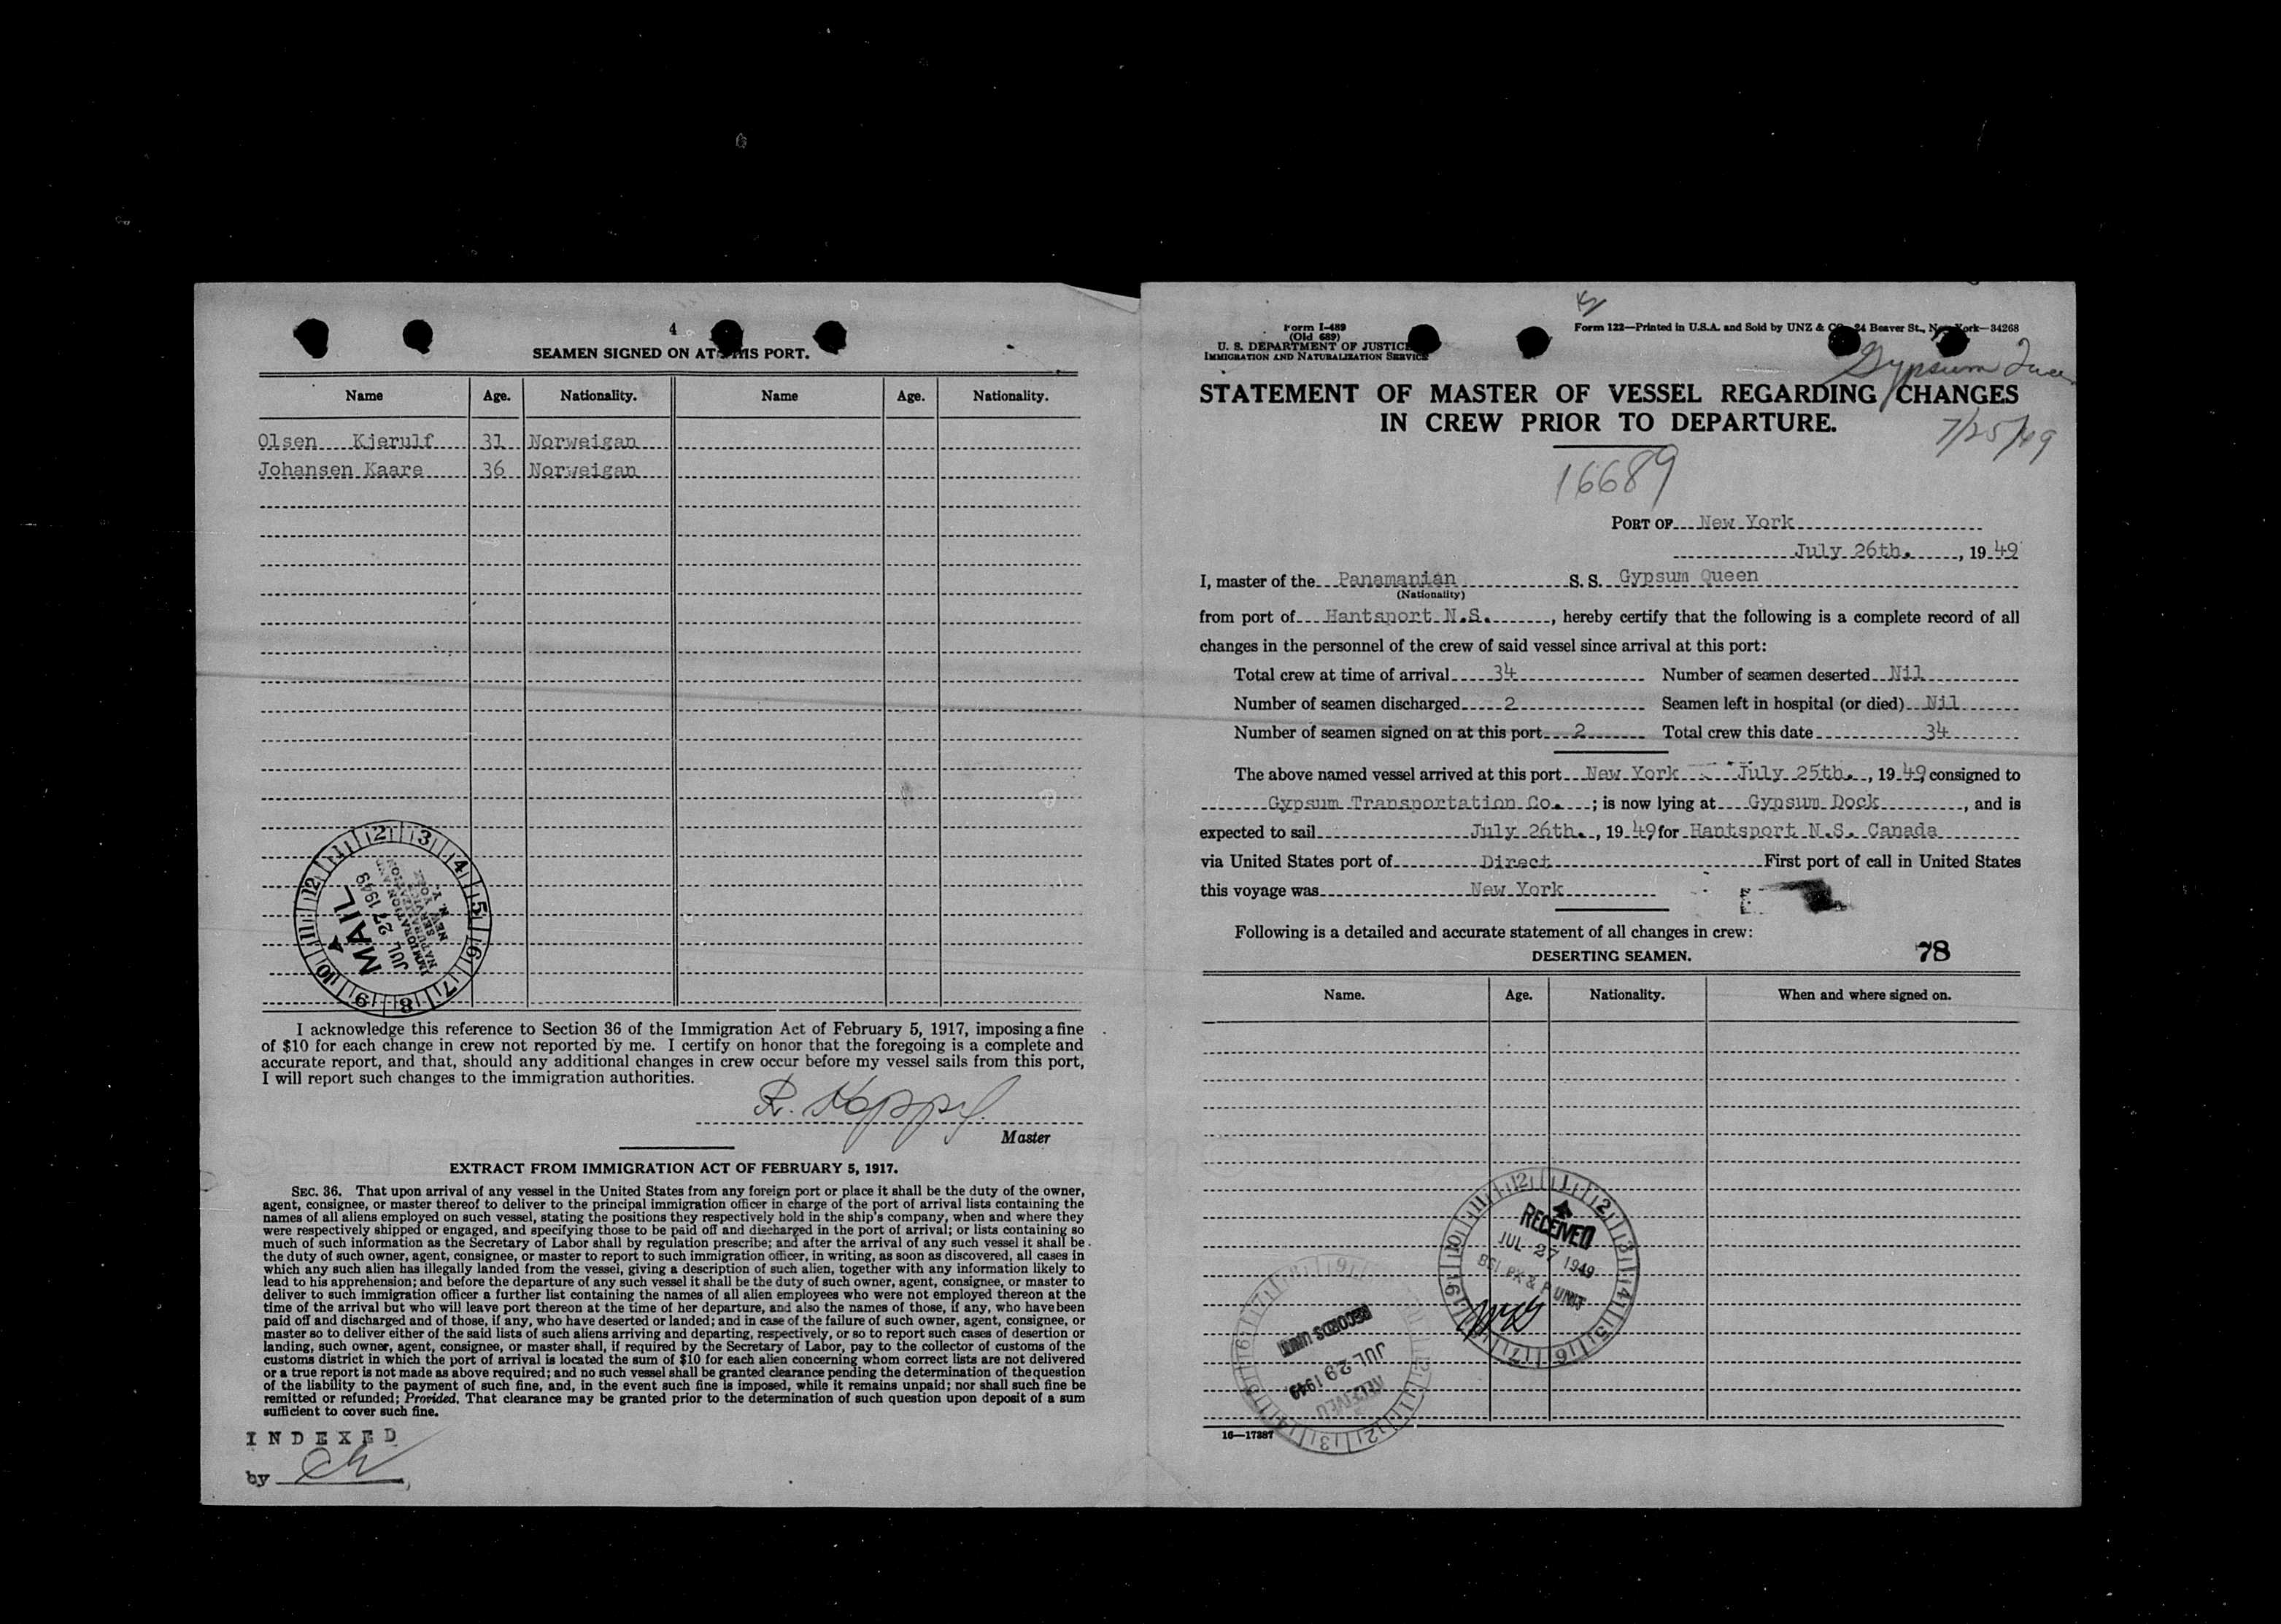 4
SEAMEN SIGNED ON AT THIS PORT.
Name Age. Nationality. Name Age. Nationality.
Olsen Kjerulf 31 Norweigan
Johansen Kaare 36 Norweigan
MAIL
JUL 27 1949
IMMIGRATION AND
NATURALIZATION
SERVICE
NEW YORK
N. Y.
I acknowledge this reference to Section 36 of the Immigration Act of February 5, 1917, imposing a fine
of $10 for each change in crew not reported by me. I certify on honor that the foregoing is a complete and
accurate report, and that, should any additional changes in crew occur before my vessel sails from this port,
I will report such changes to the immigration authorities.
Master
EXTRACT FROM IMMIGRATION ACT OF FEBRUARY 5, 1917.
SEC. 36. That upon arrival of any vessel in the United States from any foreign port or place it shall be the duty of the owner,
agent, consignee, or master thereof to deliver to the principal immigration officer in charge of the port of arrival lists containing the
names of all aliens employed on such vessel, stating the positions they respectively hold in the ship's company, when and where they
were respectively shipped or engaged, and specifying those to be paid off and discharged in the port of arrival; or lists containing so
much of such information as the Secretary of Labor shall by regulation prescribe; and after the arrival of any such vessel it shall be
the duty of such owner, agent, consignee, or master to report to such immigration officer, in writing, as soon as discovered, all cases in
which any such alien has illegally landed from the vessel, giving a description of such alien, together with any information likely to
lead to his apprehension; and before the departure of any such vessel it shall be the duty of such owner, agent, consignee, or master to
deliver to such immigration officer a further list containing the names of all alien employees who were not employed thereon at the
time of the arrival but who will leave port thereon at the time of her departure, and also the names of those, if any, who have been
paid off and discharged and of those, if any, who have deserted or landed; and in case of the failure of such owner, agent, consignee, or
master so to deliver either of the said lists of such aliens arriving and departing, respectively, or so to report such cases of desertion or
landing, such owner, agent, consignee, or master shall, if required by the Secretary of Labor, pay to the collector of customs of the
customs district in which the port of arrival is located the sum of $10 for each alien concerning whom correct lists are not delivered
or a true report is not made as above required; and no such vessel shall be granted clearance pending the determination of the question
of the liability to the payment of such fine, and, in the event such fine is imposed, while it remains unpaid; nor shall such fine be
remitted or refunded; Provided, That clearance may be granted prior to the determination of such question upon deposit of a sum
sufficient to cover such fine.
INDEXED
by
Form I-489
(Old 689)
U. S. DEPARTMENT OF JUSTICE
IMMIGRATION AND NATURALIZATION SERVICE
Form 122—Printed in U.S.A. and Sold by UNZ & CO., 24 Beaver St., New York—34268
Gypsum Queen
STATEMENT OF MASTER OF VESSEL REGARDING CHANGES
IN CREW PRIOR TO DEPARTURE.
7/25/49
16689
PORT OF New York
July 26th. , 19 49
I, master of the Panamanian S. S. Gypsum Queen
(Nationality)
from port of Hantsport N.S. , hereby certify that the following is a complete record of all
changes in the personnel of the crew of said vessel since arrival at this port:
Total crew at time of arrival 34 Number of seamen deserted Nil
Number of seamen discharged 2 Seamen left in hospital (or died) Nil
Number of seamen signed on at this port 2 Total crew this date 34
The above named vessel arrived at this port New York July 25th. , 19 49 consigned to
Gypsum Transportation Co. ; is now lying at Gypsum Dock , and is
expected to sail July 26th. , 19 49 for Hantsport N.S. Canada
via United States port of Direct First port of call in United States
this voyage was New York
Following is a detailed and accurate statement of all changes in crew:
DESERTING SEAMEN. 78
Name. Age. Nationality. When and where signed on.
RECEIVED
JUL 27 1949
RECORDS UNIT
JUL 28 1949
RECEIVED
16—17387